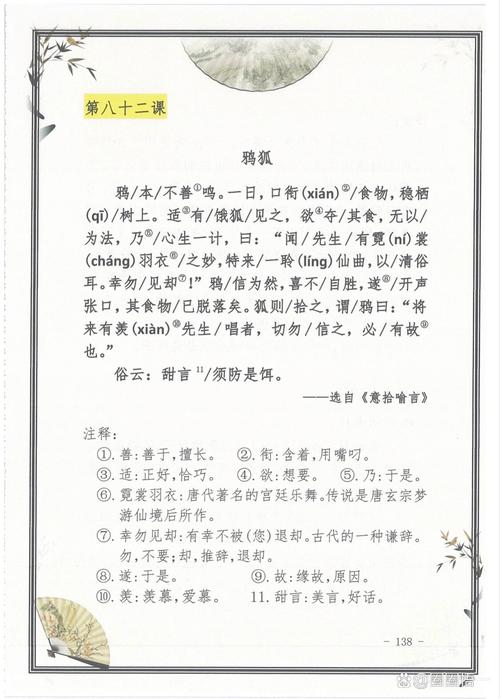 第八十二课
鸦狐
鸦/本/不善①鸣。一日,口衔(xián)②/食物,稳栖
(qī)/树上。适③有/饿狐/见之,欲④夺/其食,无以/
为法,乃⑤/心生一计,曰:“闻/先生/有霓(ní)裳
(cháng)羽衣⑥/之妙,特来/一聆(líng)仙曲,以/清俗
耳。幸勿/见却⑦!”鸦/信为然,喜不/自胜,遂⑧/开声
张口,其食物/已脱落矣。狐则/拾之,谓/鸦曰:“将
来有羡(xiàn)⑩先生/唱者,切勿/信之,必/有故⑨
也。”
俗云:甜言11/须防是饵。
——选自《意拾喻言》
注释:
①. 善:善于,擅长。 ②. 衔:含着,用嘴叼。
③. 适:正好,恰巧。 ④. 欲:想要。 ⑤. 乃:于是。
⑥. 霓裳羽衣:唐代著名的宫廷乐舞。传说是唐玄宗梦
游仙境后所作。
⑦. 幸勿见却:有幸不被(您)退却。古代的一种谦辞。
勿,不要;却,推辞,退却。
⑧. 遂:于是。 ⑨. 故:缘故,原因。
⑩. 羡:羡慕,爱慕。 11. 甜言:美言,好话。
- 138 -